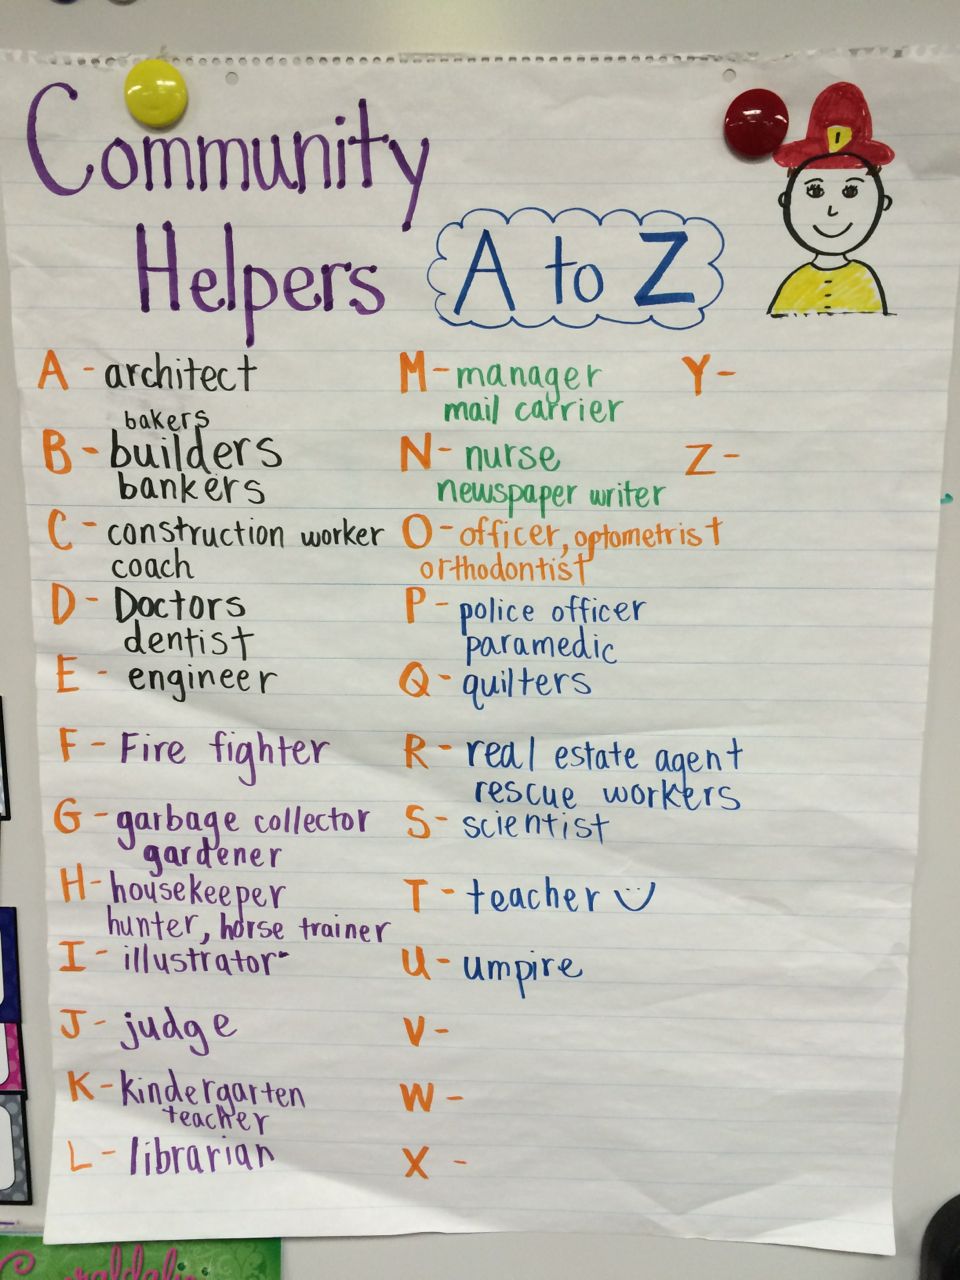 Community
Helpers
A to Z
A - architect
bakers
B - builders
bankers
C - construction worker
coach
D - Doctors
dentist
E - engineer
F - Fire fighter
G - garbage collector
gardener
H - housekeeper
hunter, horse trainer
I - illustrator
J - judge
K - kindergarten
teacher
L - librarian
M - manager
mail carrier
N - nurse
newspaper writer
O - officer, optometrist
orthodontist
P - police officer
paramedic
Q - quilters
R - real estate agent
rescue workers
S - scientist
T - teacher
U - umpire
V -
W -
X -
Y -
Z -